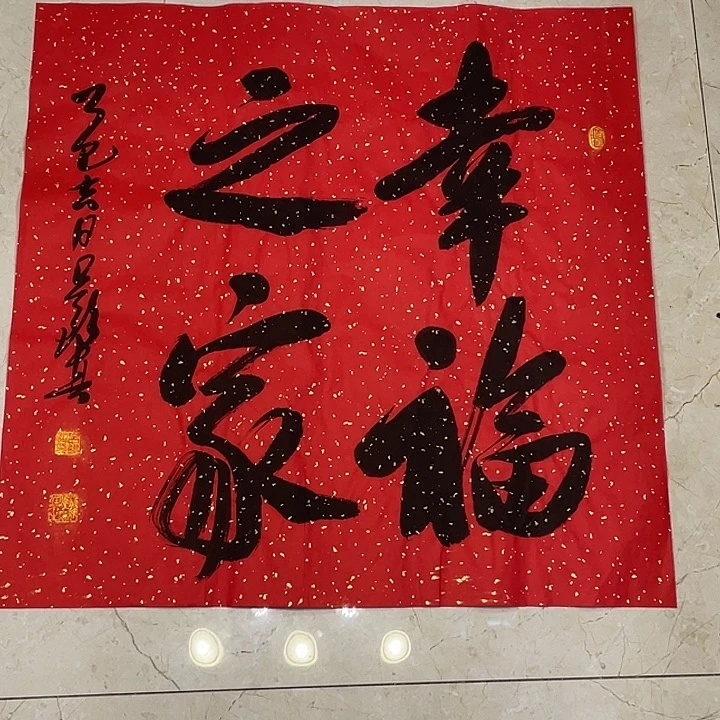 幸福
之家
乙巳吉日